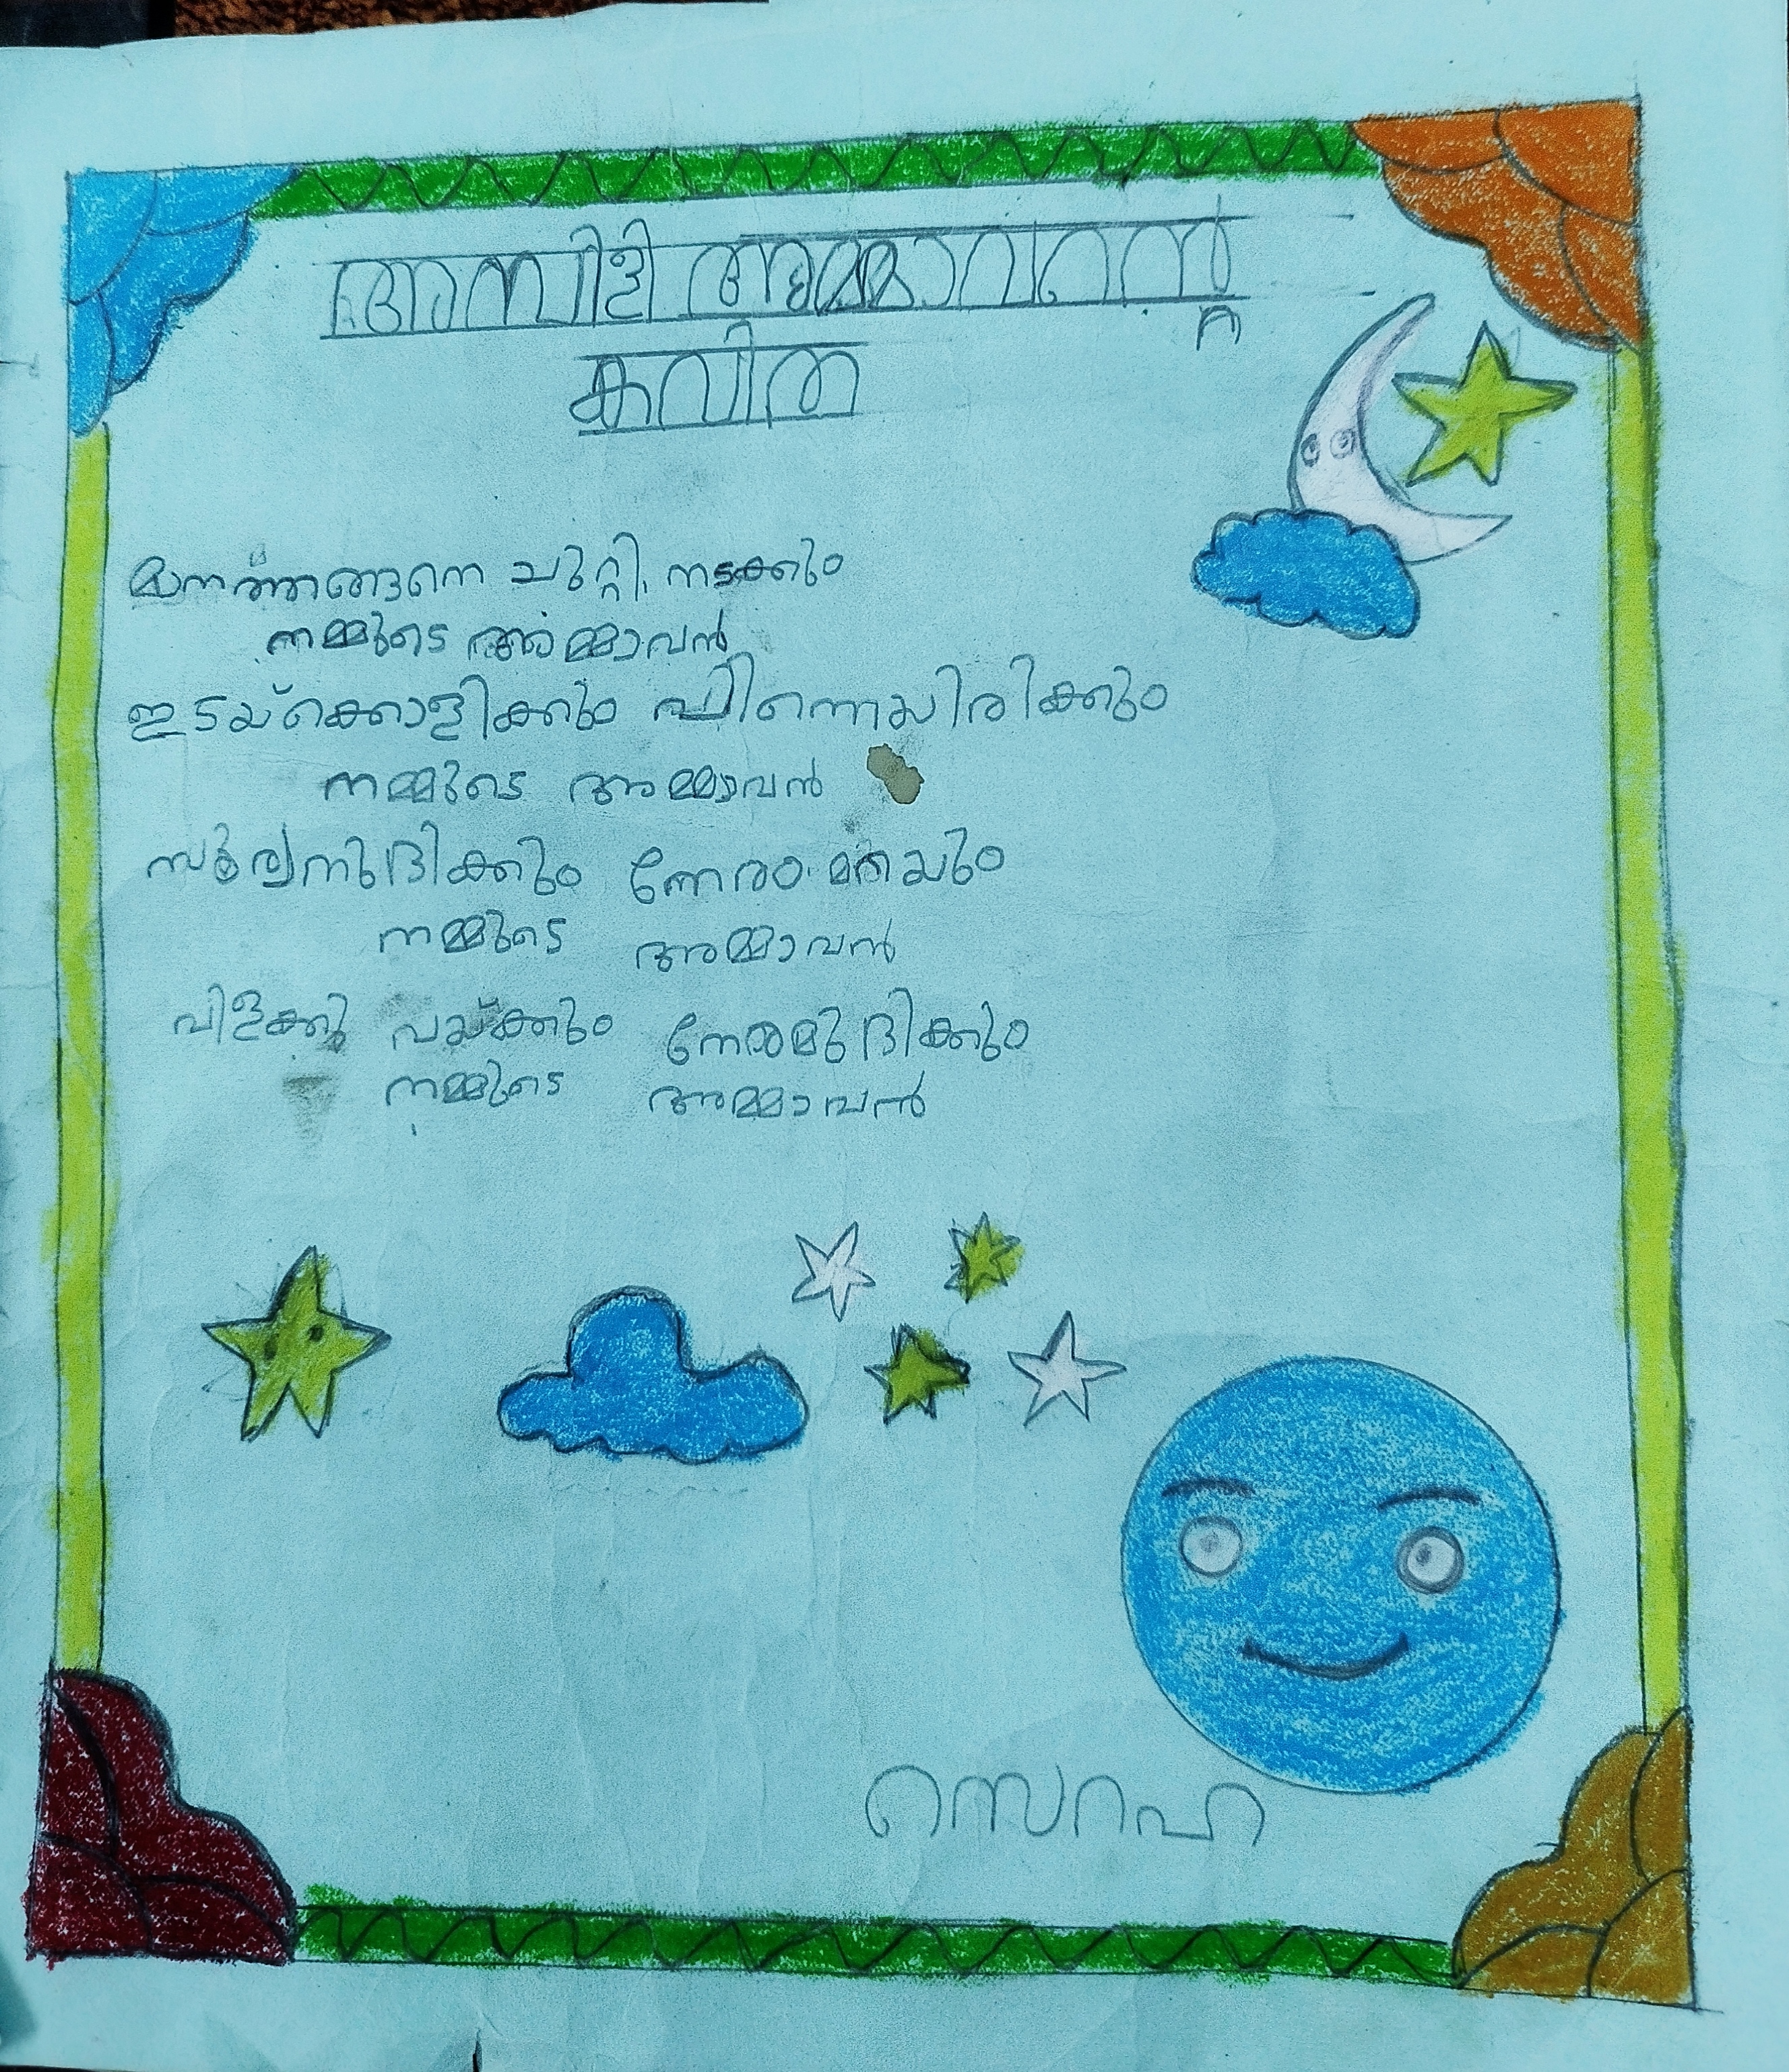 അമ്പിളി അമ്മാവൻ്റെ
കവിത
മാനത്തങ്ങനെ ചുറ്റി നടക്കും
നമ്മുടെ അമ്മാവൻ
ഇടയ്ക്കൊളിക്കും പിന്നെയിരിക്കും
നമ്മുടെ അമ്മാവൻ
സൂര്യനുദിക്കും നേരം മറയും
നമ്മുടെ അമ്മാവൻ
വിളക്കു വയ്ക്കും നേരമുദിക്കും
നമ്മുടെ അമ്മാവൻ
സെറഹ